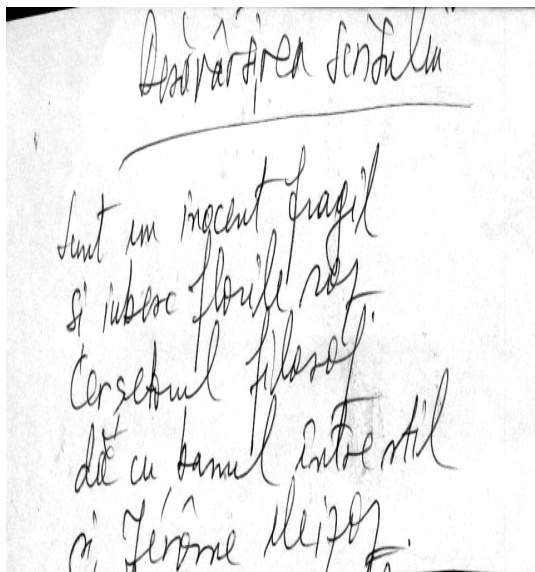 Desăvârșirea sensului
Sunt un inocent fragil
și iubesc florile roz
Cerșetorul filosof
dă cu banul într-un stil
și Jérôme Meizoz